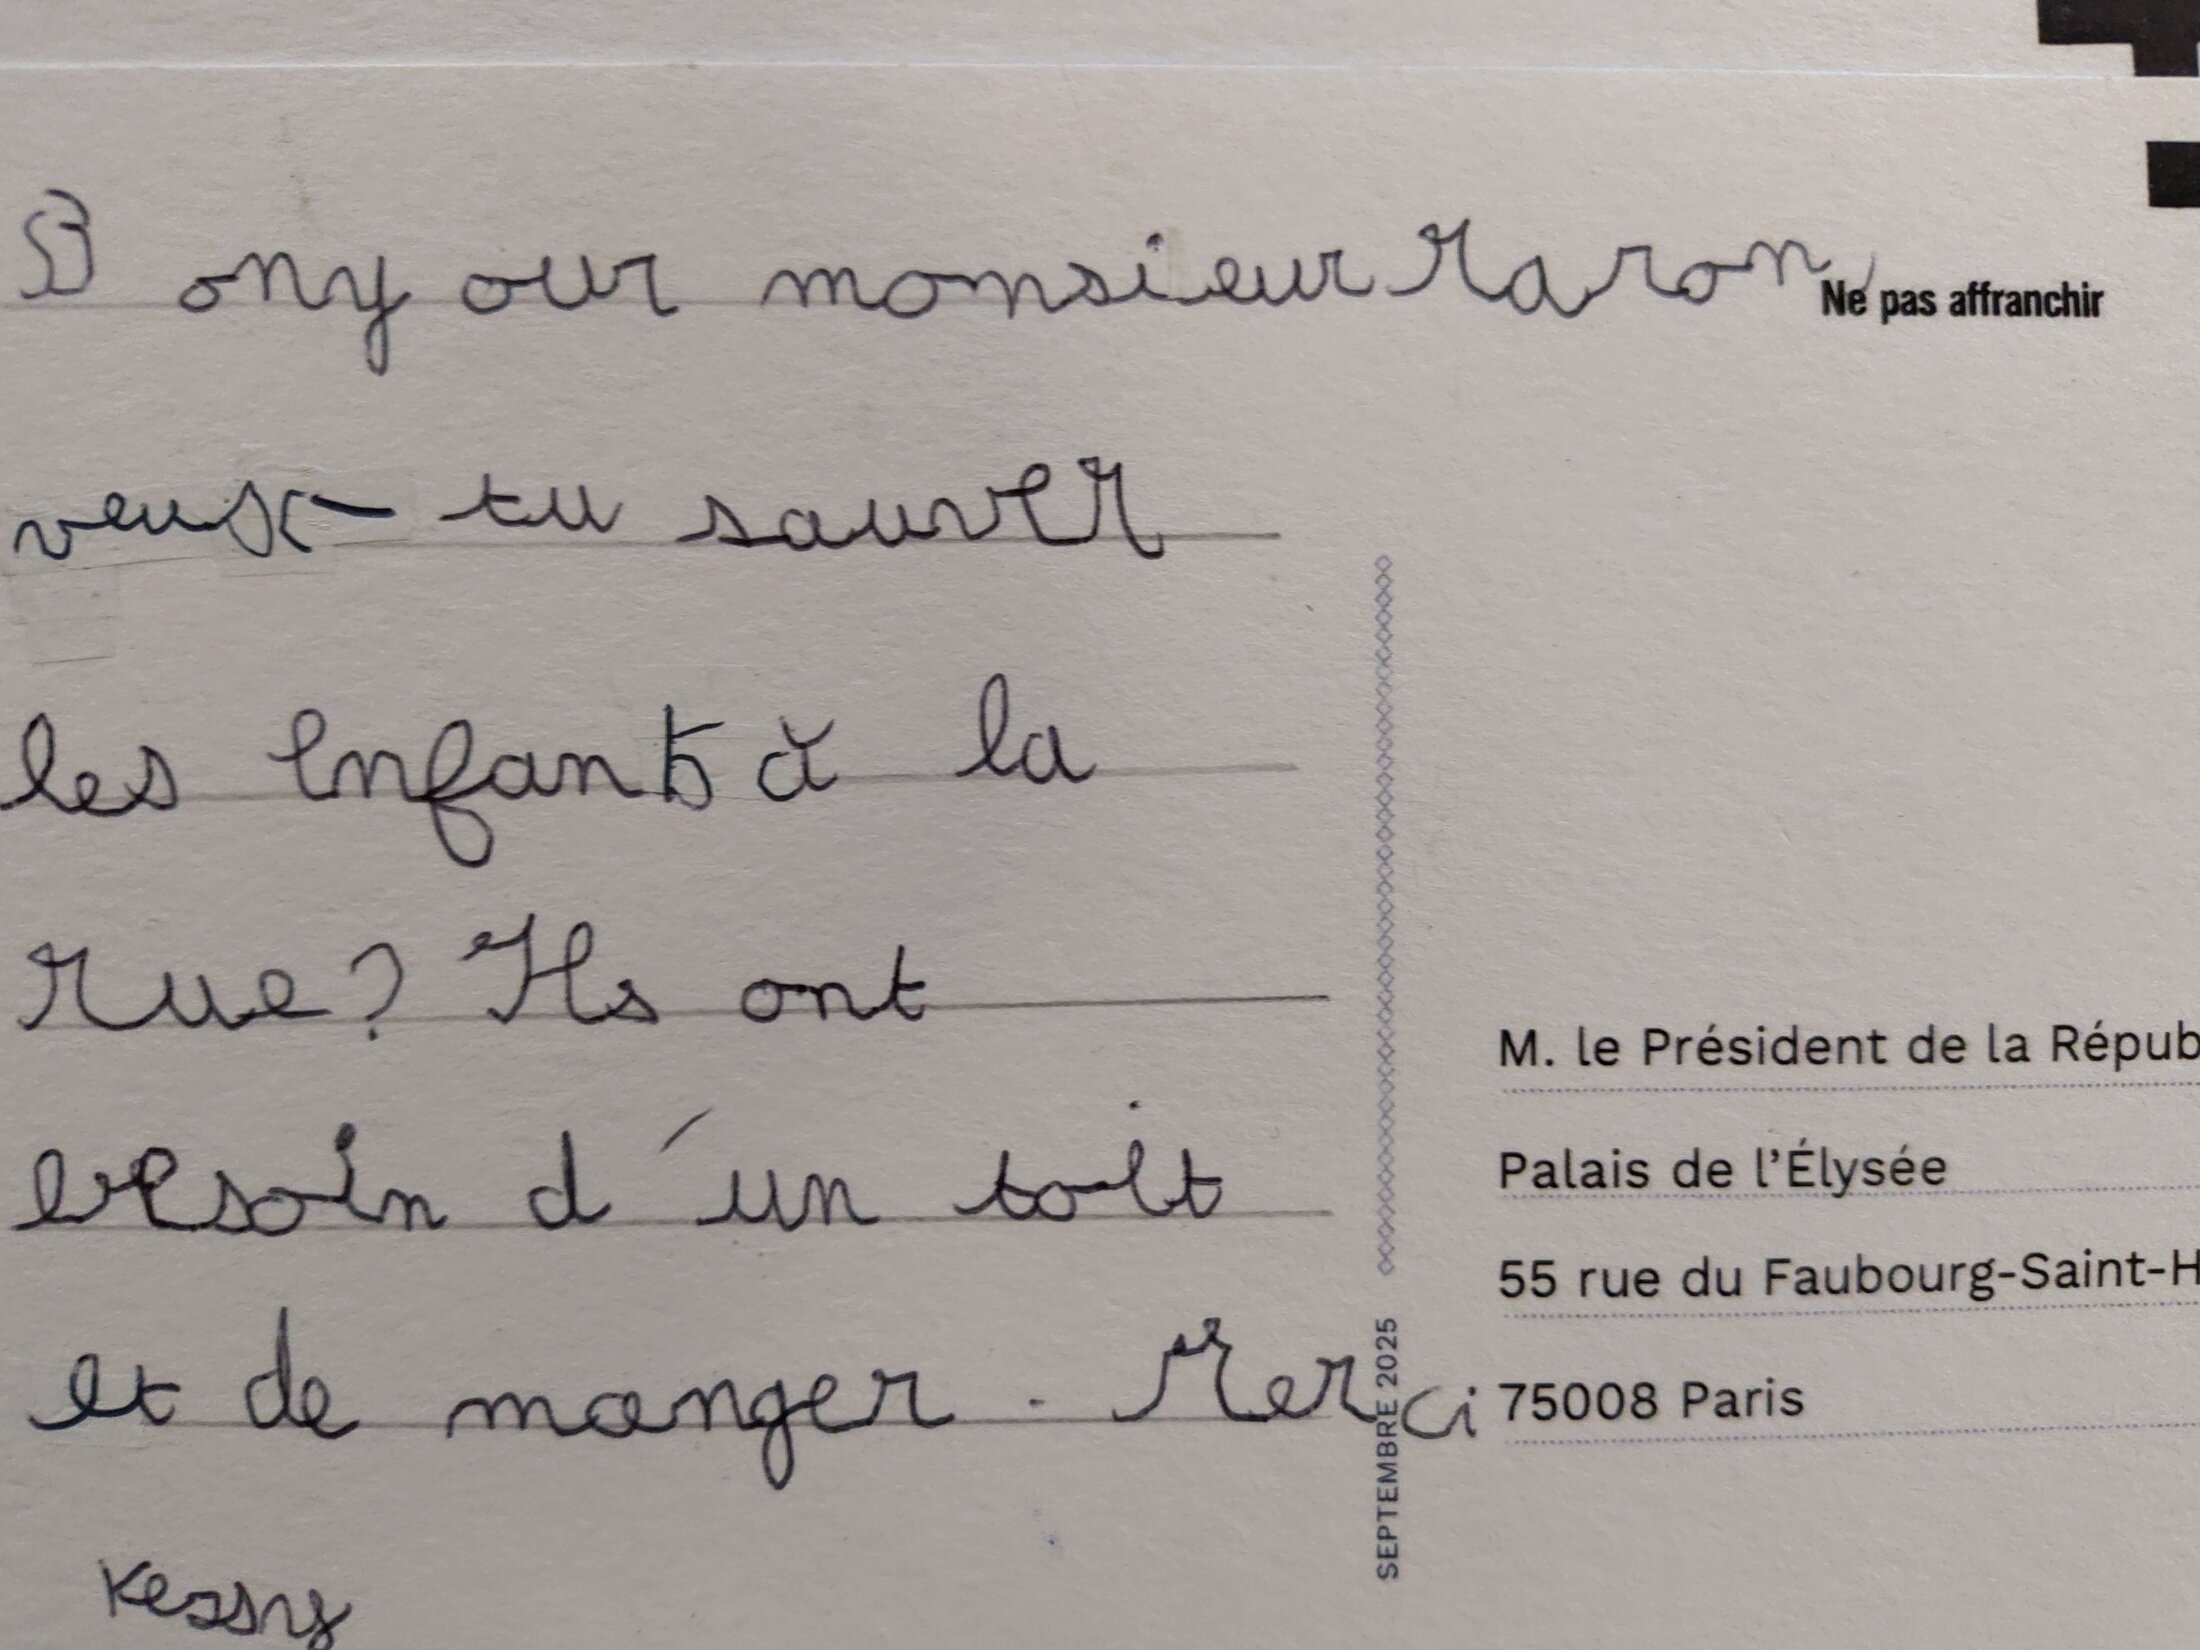 Bonjour monsieur Maron
Ne pas affranchir
veux-tu sauver
les enfants à la
rue? Ils ont
besoin d'un toit
et de manger. Merci
Kessy
SEPTEMBRE 2025
M. le Président de la Répub
Palais de l'Élysée
55 rue du Faubourg-Saint-H
75008 Paris